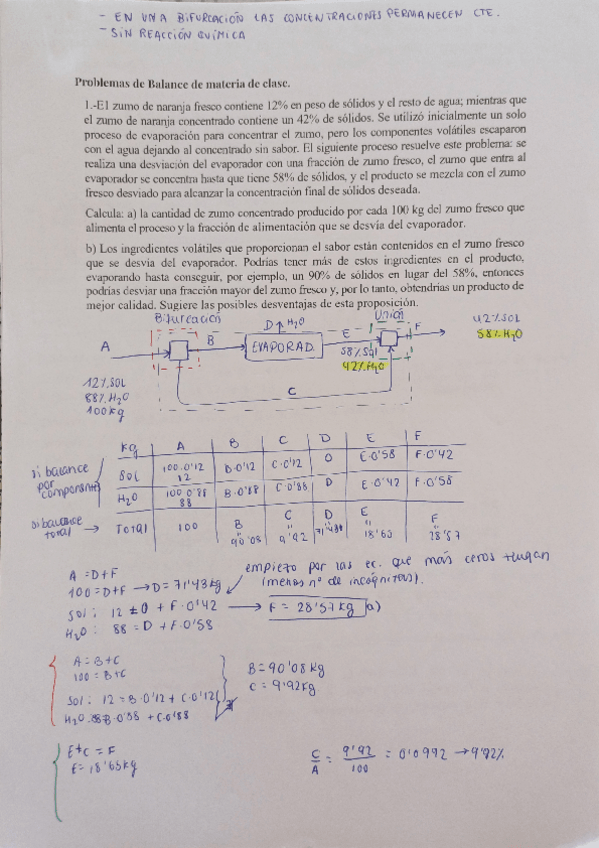 - EN UNA BIFURCACIÓN LAS CONCENTRACIONES PERMANECEN CTE.
- SIN REACCIÓN QUÍMICA
Problemas de Balance de materia de clase.
1.-El zumo de naranja fresco contiene 12% en peso de sólidos y el resto de agua; mientras que
el zumo de naranja concentrado contiene un 42% de sólidos. Se utilizó inicialmente un solo
proceso de evaporación para concentrar el zumo, pero los componentes volátiles escaparon
con el agua dejando al concentrado sin sabor. El siguiente proceso resuelve este problema: se
realiza una desviación del evaporador con una fracción de zumo fresco, el zumo que entra al
evaporador se concentra hasta que tiene 58% de sólidos, y el producto se mezcla con el zumo
fresco desviado para alcanzar la concentración final de sólidos deseada.
Calcula: a) la cantidad de zumo concentrado producido por cada 100 kg del zumo fresco que
alimenta el proceso y la fracción de alimentación que se desvía del evaporador.
b) Los ingredientes volátiles que proporcionan el sabor están contenidos en el zumo fresco
que se desvía del evaporador. Podrías tener más de estos ingredientes en el producto,
evaporando hasta conseguir, por ejemplo, un 90% de sólidos en lugar del 58%, entonces
podrías desviar una fracción mayor del zumo fresco y, por lo tanto, obtendrías un producto de
mejor calidad. Sugiere las posibles desventajas de esta proposición.
Bifurcación D H₂O Unión 42%SOL
A B EVAPORAD. E F 58%H₂O
58%Sól
42%H₂O
12%SOL C
88%H₂O
100kg
kg A B C D E F
SOL 100·0'12 B·0'12 C·0'12 0 E·0'58 F·0'42
12
H₂O 100·0'88 B·0'88 C·0'88 D E·0'42 F·0'58
88
Si balance por componentes
Si balance total → TOTAL 100 B C D E F
90'08 9'92 71'43 18'65 28'57
A = D+F
100 = D+F → D = 71'43kg
empiezo por las ec. que más ceros tengan
(menos nº de incógnitas).
Sol: 12 = 0 + F·0'42 → F = 28'57 kg a)
H₂O: 88 = D + F·0'58
A = B+C
100 = B+C
Sol: 12 = B·0'12 + C·0'12
H₂O: 88 B·0'88 + C·0'88
B = 90'08 kg
C = 9'92 kg
E+C = F
E = 18'65kg
C/A = 9'92/100 = 0'0992 → 9'92%